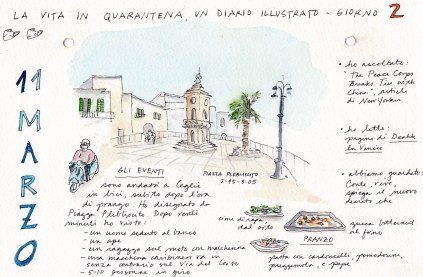 LA VITA IN QUARANTENA, UN DIARIO ILLUSTRATO - GIORNO 2
11 MARZO
• ho ascoltato:
"The Peace Corps
Breaks Ties with
China", article
di New Yorker
• ho letto:
pagine di Death
in Venice
• abbiamo guardato:
Conte, vivo,
spiega il nuovo
decreto che
GLI EVENTI
PIAZZA PLEBISCITO
2:45-3:05
sono andata a Ceglie
in bici, subito dopo l'ora
di pranzo. Ho disegnato da
Piazza Plebiscito. Dopo venti
minuti ho visto:
- un uomo seduto al banco
- un ape
- un ragazzo sul moto con mascherina
- una macchina carabinieri va in
senso contrario sul Via del Corso
- 5-10 persone in giro
cime di rapa
dal orto
PRANZO
zucca butternut
al forno
pasta con cardoncelli, pomodorini,
prezzemolo e pepe